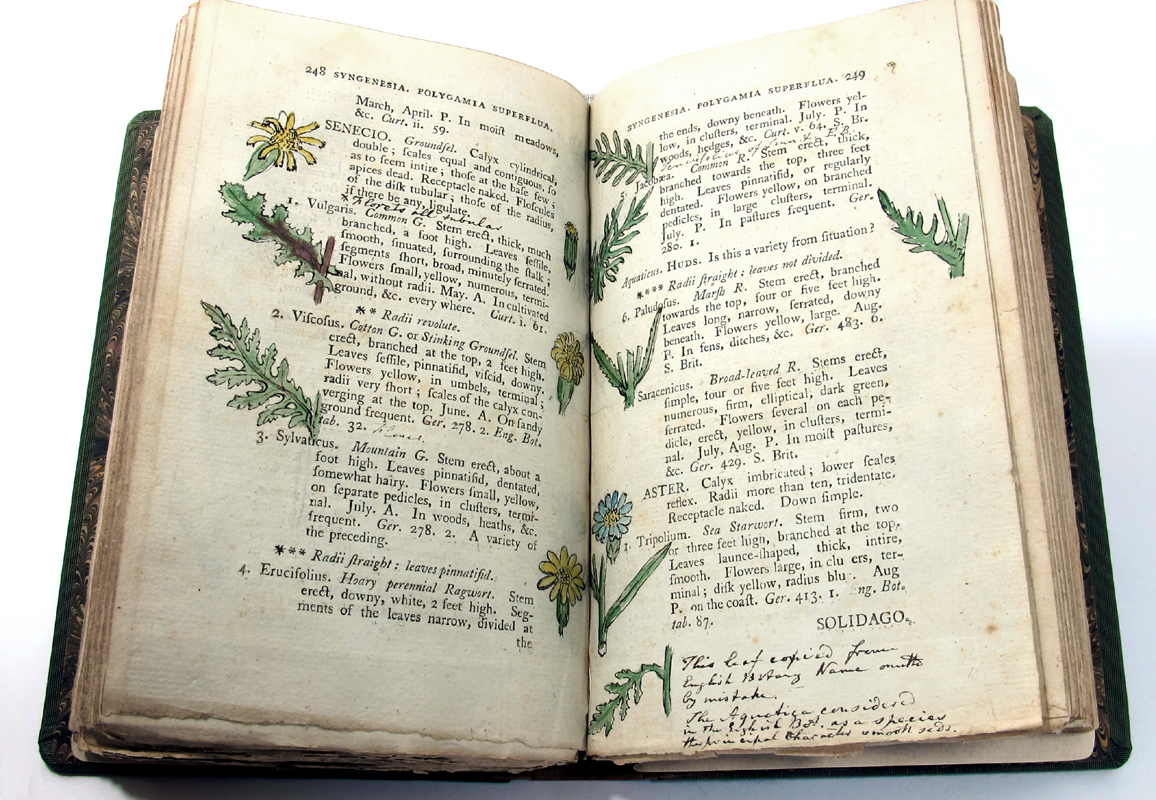 248 SYNGENESIA. POLYGAMIA SUPERFLUA.
March, April. P. In moiſt meadows,
&c. Curt. ii. 59.
SENECIO. Groundſel. Calyx cylindrical,
double; ſcales equal and contiguous, ſo
as to ſeem intire; thoſe at the baſe few;
apices dead. Receptacle naked. Floſcules
of the diſk tubular; thoſe of the radius,
if there be any, ligulate.
* Florets all tubular
1. Vulgaris. Common G. Stem erect, thick, much
branched, a foot high. Leaves ſeſſile,
ſmooth, ſinuated, ſurrounding the ſtalk;
ſegments ſhort, broad, minutely ſerrated.
Flowers ſmall, yellow, numerous, termi-
nal, without radii. May. A. In cultivated
ground, &c. every where. Curt. i. 61.
** Radii revolute.
2. Viſcoſus. Cotton G. or Stinking Groundſel. Stem
erect, branched at the top, 2 feet high.
Leaves ſeſſile, pinnatifid, viſcid, downy.
Flowers yellow, in umbels, terminal;
radii very ſhort; ſcales of the calyx con-
verging at the top. June. A. On ſandy
ground frequent. Ger. 278. 2. Eng. Bot.
tab. 32.
3. Sylvaticus. Mountain G. Stem erect, about a
foot high. Leaves pinnatifid, dentated,
ſomewhat hairy. Flowers ſmall, yellow,
on ſeparate pedicles, in cluſters, termi-
nal. July. A. In woods, heaths, &c.
frequent. Ger. 278. 2. A variety of
the preceding.
*** Radii ſtraight: leaves pinnatifid.
4. Erucifolius. Hoary perennial Ragwort. Stem
erect, downy, white, 2 feet high. Seg-
ments of the leaves narrow, divided at
the
SYNGENESIA. POLYGAMIA SUPERFLUA. 249
the ends, downy beneath. Flowers yel-
low, in cluſters, terminal. July. P. In
woods, hedges, &c. Curt. v. 64. S. Br.
5. Jacobæa. Common R. Stem erect, thick,
branched towards the top, three feet
high. Leaves pinnatifid, or regularly
dentated. Flowers yellow, on branched
pedicles, in large cluſters, terminal.
July. P. In paſtures frequent. Ger.
280. 1.
Aquaticus. HUDS. Is this a variety from ſituation?
**** Radii ſtraight: leaves not divided.
6. Paludoſus. Marſh R. Stem erect, branched
towards the top, four or five feet high.
Leaves long, narrow, ſerrated, downy
beneath. Flowers yellow, large. Aug.
P. In fens, ditches, &c. Ger. 483. 6.
S. Brit.
Saracenicus. Broad-leaved R. Stems erect,
ſimple, four or five feet high. Leaves
numerous, firm, elliptical, dark green,
ſerrated. Flowers ſeveral on each pe-
dicle, erect, yellow, in cluſters, termi-
nal. July, Aug. P. In moiſt paſtures,
&c. Ger. 429. S. Brit.
ASTER. Calyx imbricated; lower ſcales
reflex. Radii more than ten, tridentate.
Receptacle naked. Down ſimple.
1. Tripolium. Sea Starwort. Stem firm, two
or three feet high, branched at the top.
Leaves launce-ſhaped, thick, intire,
ſmooth. Flowers large, in clu ers, ter-
minal; diſk yellow, radius blu . Aug
P. on the coaſt. Ger. 413. 1. Eng. Bot.
tab. 87.
SOLIDAGO.
This leaf copied from
English Botany Name omitt
by mistake.
The Aquatica considered
in the English Bot. as a species
the principal Character smooth seeds.